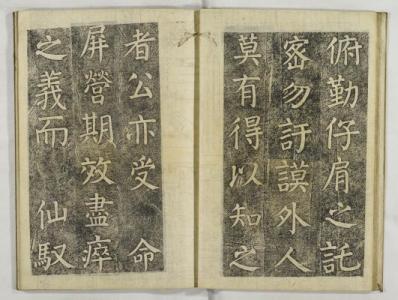 俯勤仔肩之託
宻勿訏謨外人
莫有得以知之
者公亦受 命
屏營期效盡瘁
之義而 仙馭